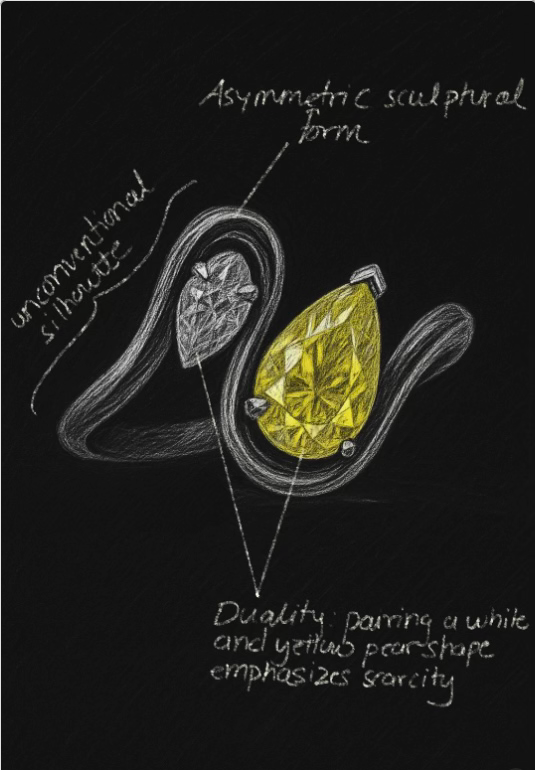 Asymmetric sculptural
form
unconventional
silhouette
Duality: pairing a white
and yellow pear shape
emphasizes scarcity